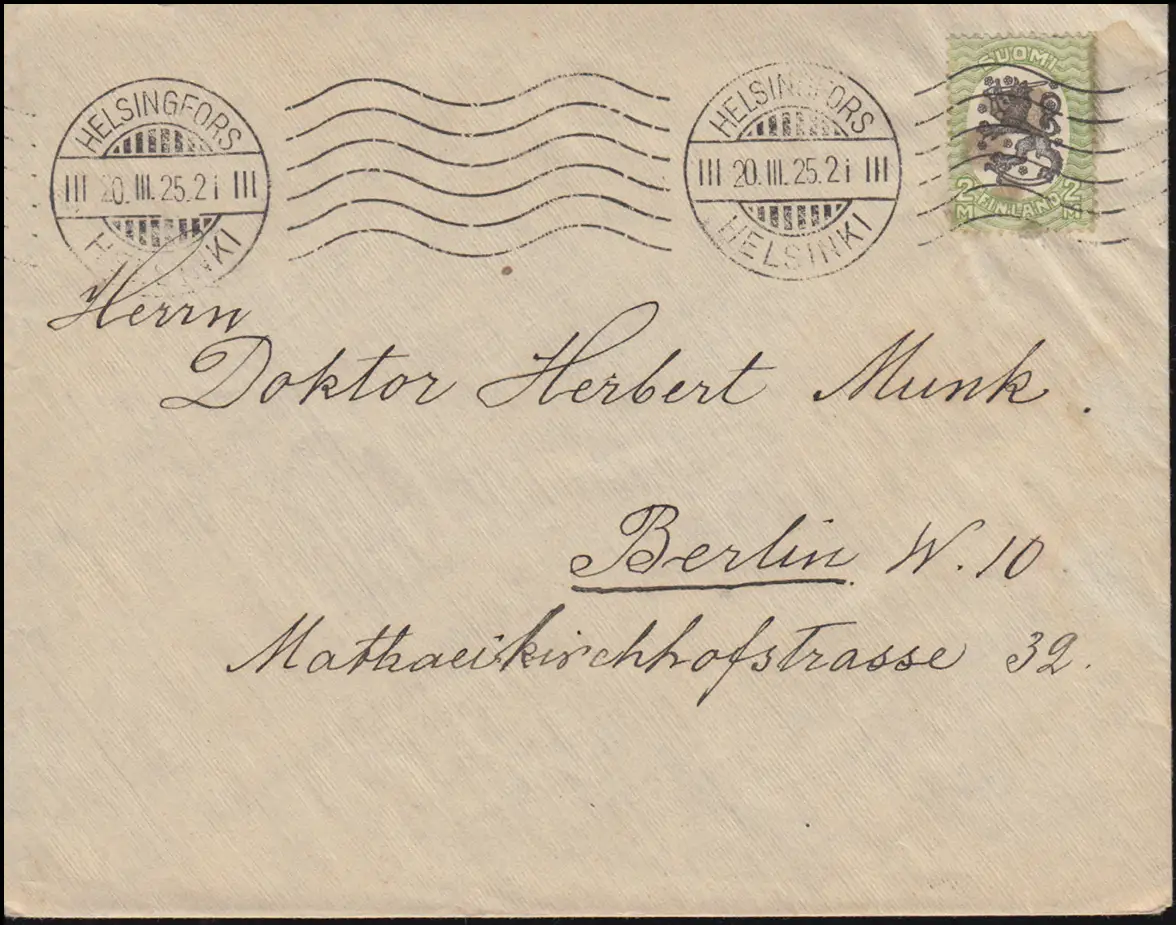 HELSINGFORS
III 20. III. 25. 21 III
HELSINKI
HELSINGFORS
III 20. III. 25. 21 III
HELSINKI
SUOMI
2 M FINLAND 2 M
Herrn
Doktor Herbert Munk.
Berlin W. 10
Mathaeikirchhofstrasse 32.